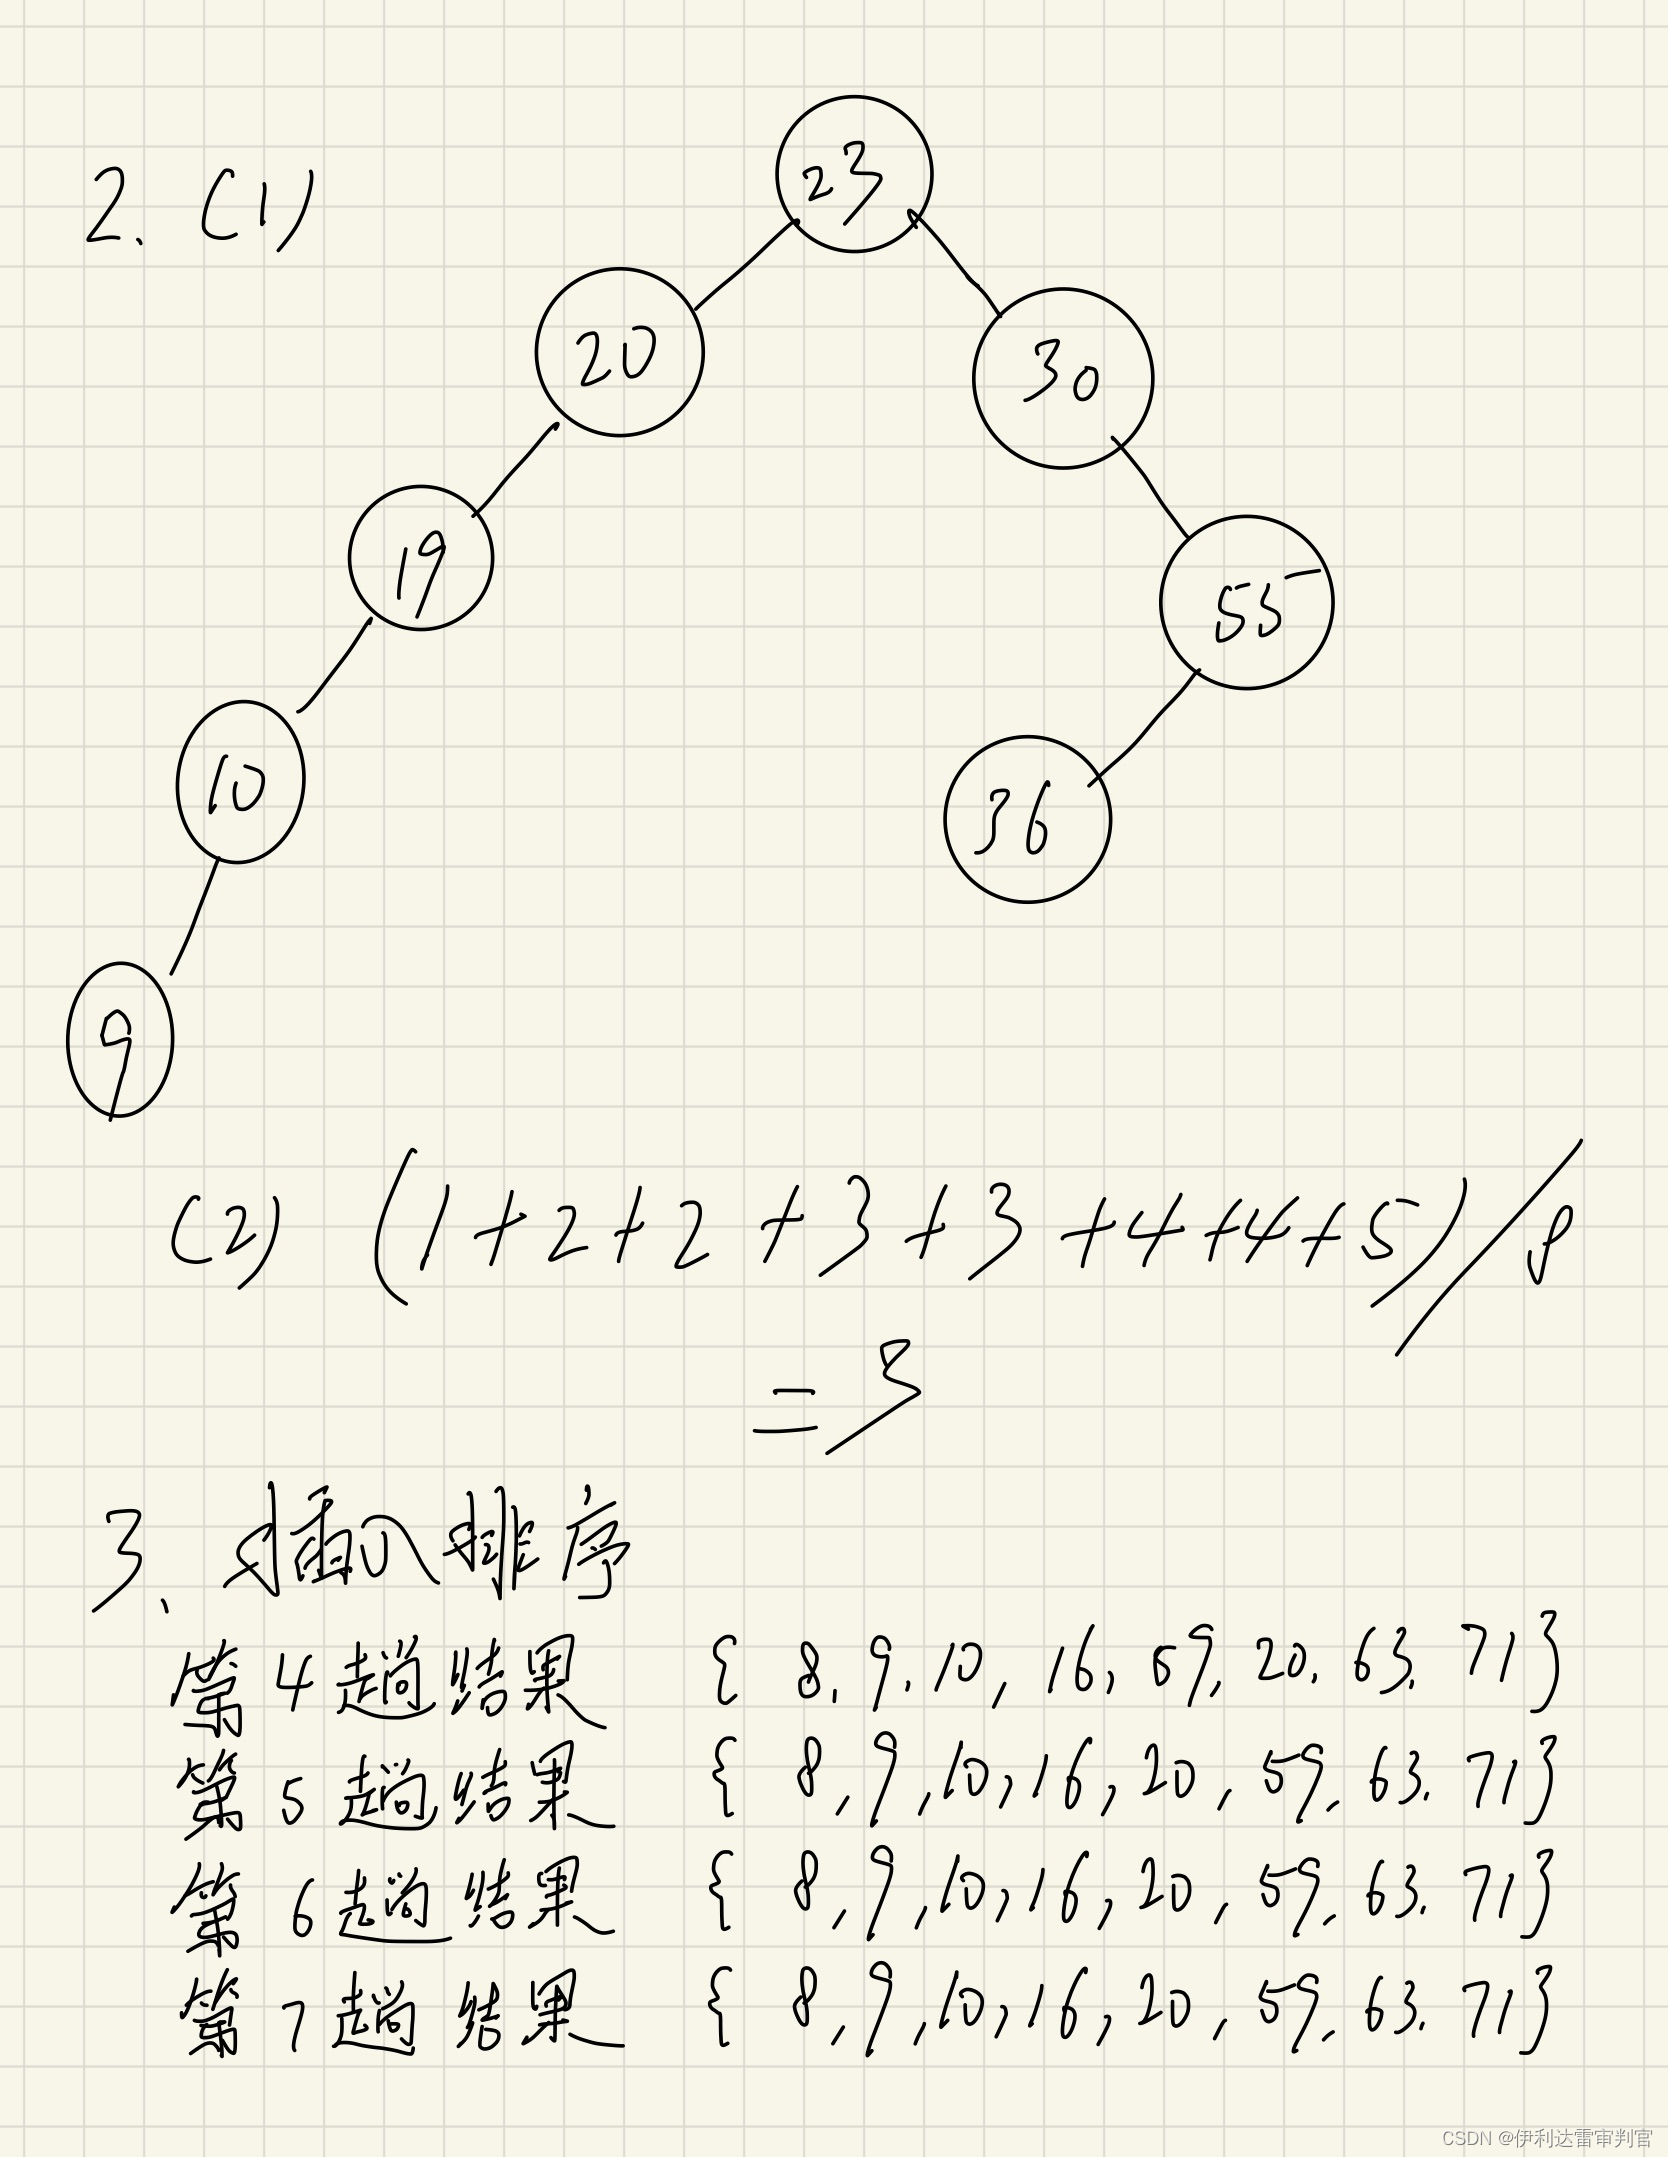 2. (1)
23
20
30
19
55
10
36
9
(2) (1+2+2+3+3+4+4+5)/8
=3
3、插入排序
第4趟结果 { 8, 9, 10, 16, 59, 20, 63, 71}
第5趟结果 { 8, 9, 10, 16, 20, 59, 63, 71}
第6趟结果 { 8, 9, 10, 16, 20, 59, 63, 71}
第7趟结果 { 8, 9, 10, 16, 20, 59, 63, 71}
CSDN @伊利达雷审判官